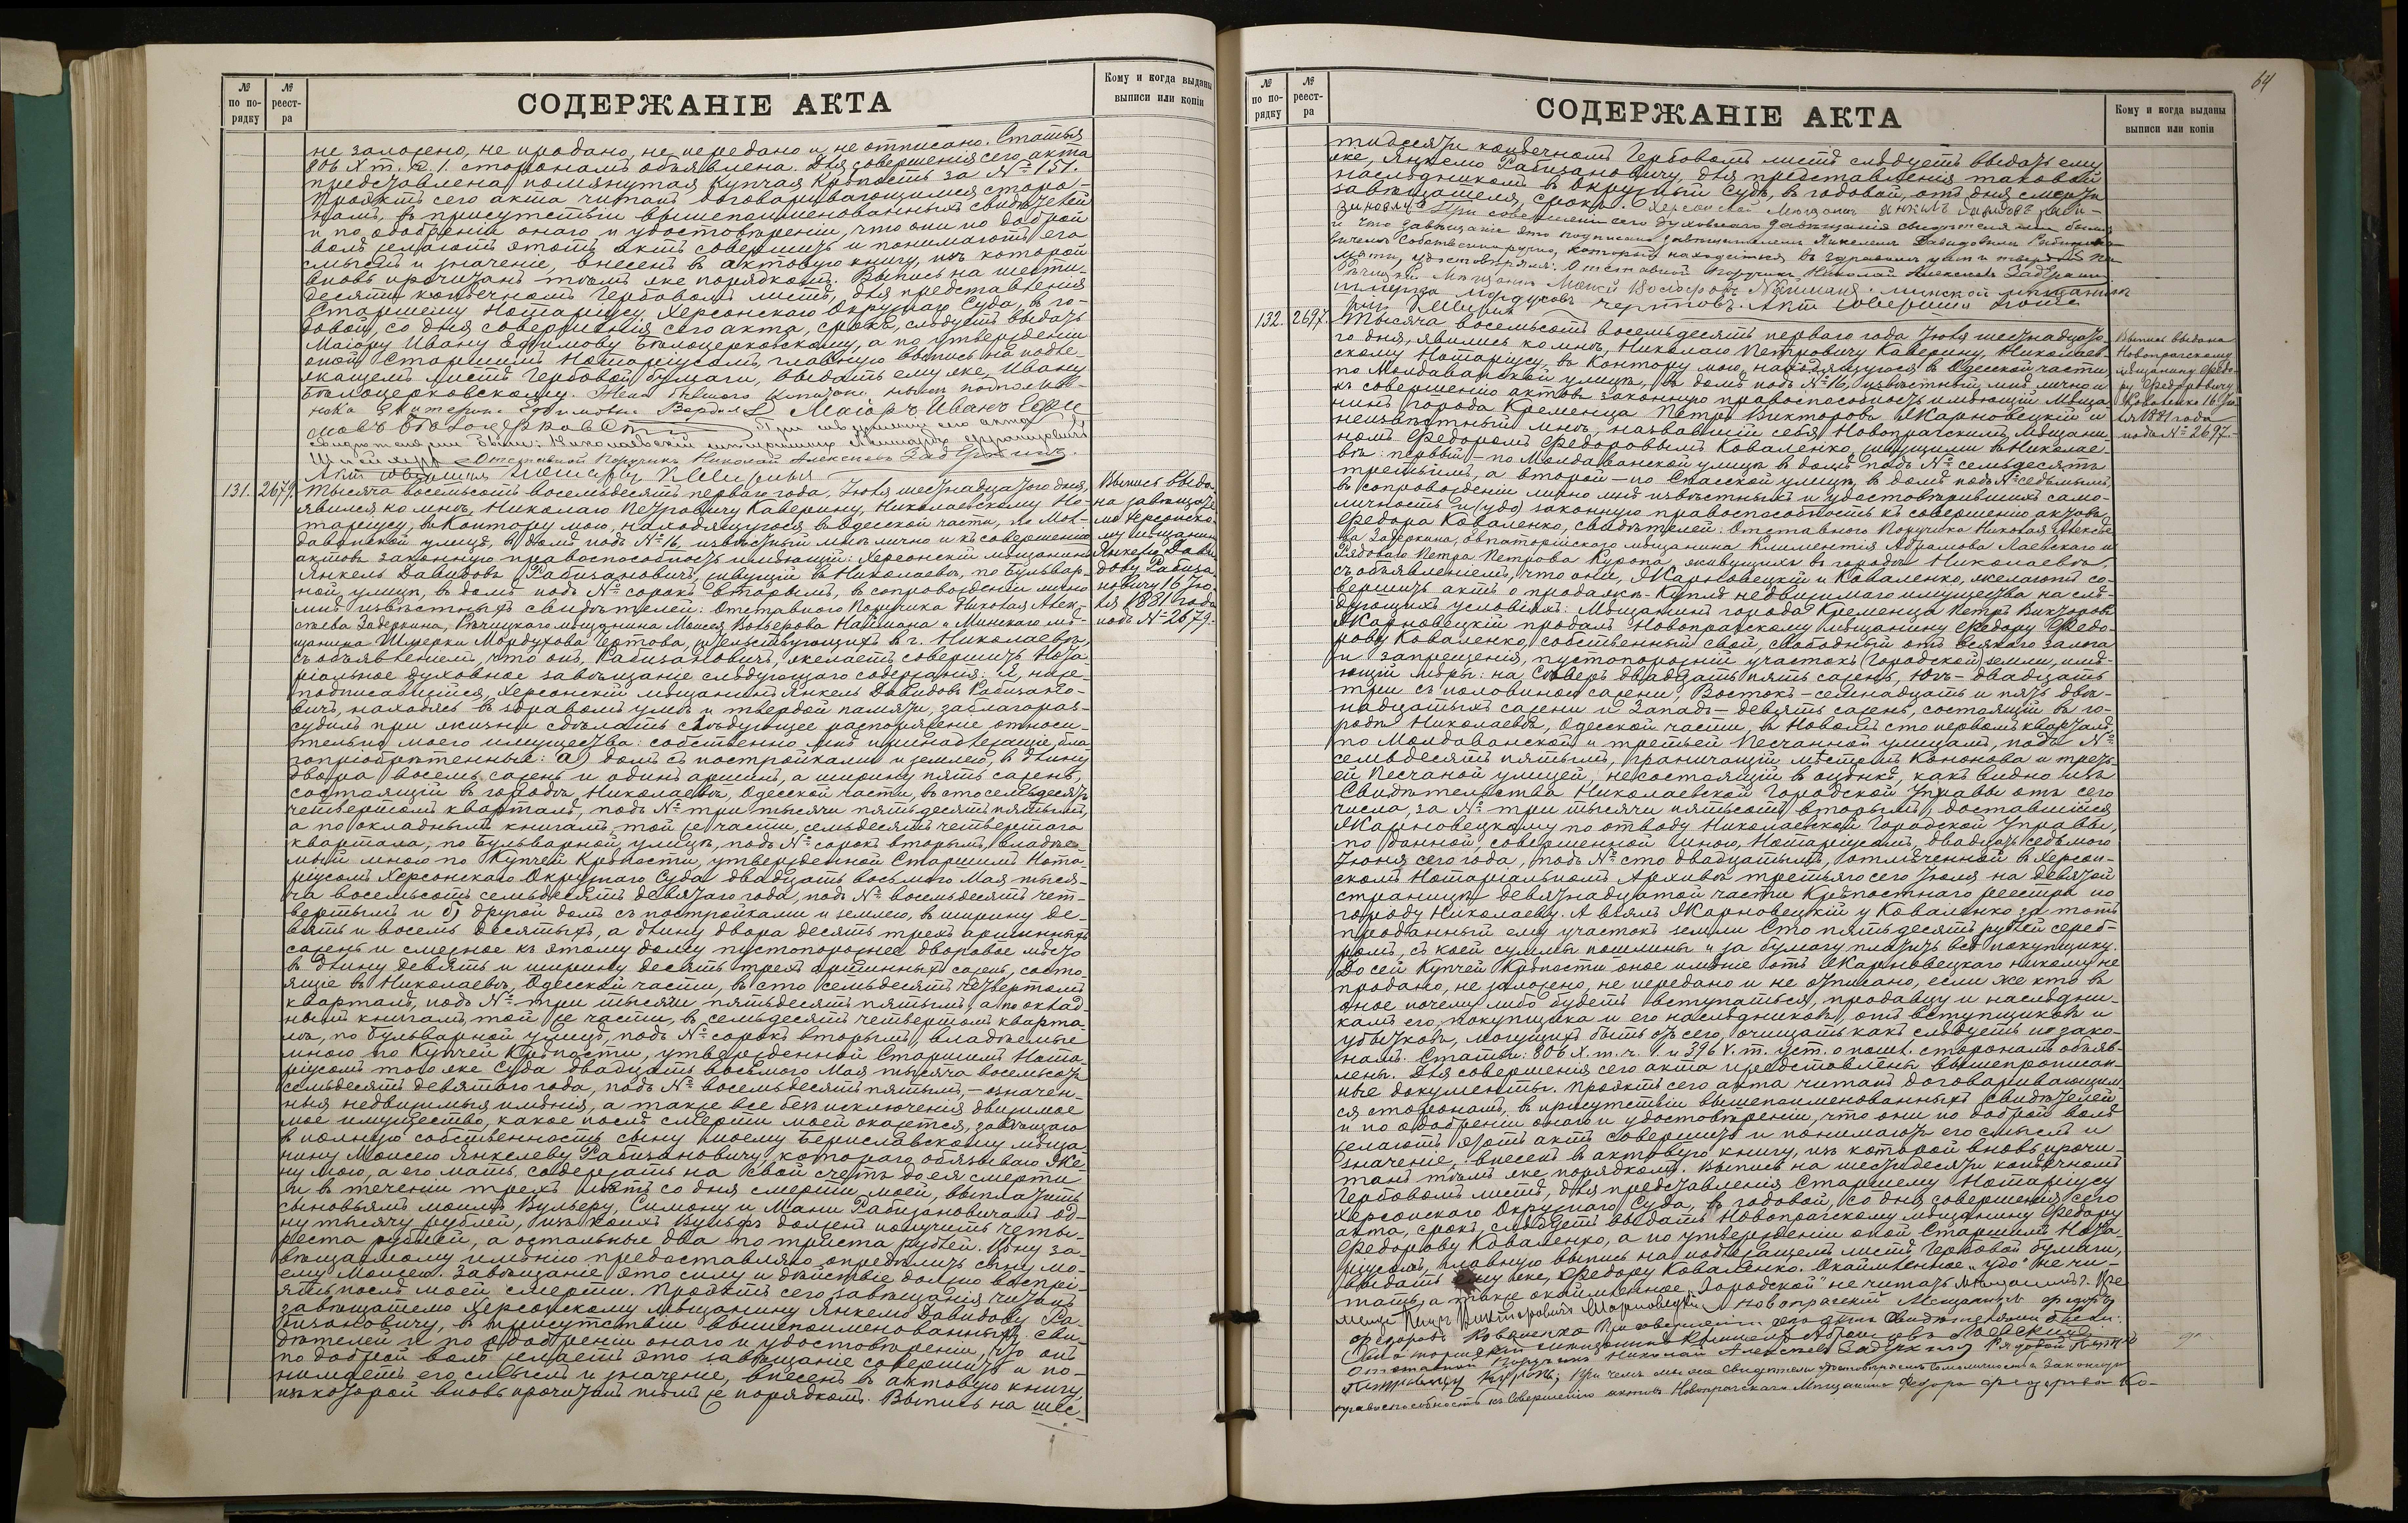 № по по-рядку
№ реест-ра
СОДЕРЖАНІЕ АКТА
Кому и когда выданы выписи или копіи
не заложено, не продано, не передано и не отписано. Статья
806 X т. ч. 1. сторонамъ объявлена. Для совершенія сего акта
представлена помянутая купчая крѣпость за № 151.
Проэктъ сего акта читанъ договаривающимся сторо-
намъ, въ присутствіи вышепоименованныхъ свидѣтелей
и по одобреніи онаго и удостовѣреніи, что они по доброй
волѣ желаютъ этотъ актъ совершить и понимаютъ его
смыслъ и значеніе, внесенъ въ актовую книгу, изъ которой
вновь прочитанъ тѣмъ же порядкомъ. Выпись на шести-
десяти копѣечномъ Гербовомъ листѣ, для представленія
Старшему Нотаріусу Херсонскаго Окружнаго Суда, въ го-
довой, со дня совершенія сего акта, срокъ, слѣдуетъ выдать
Маіору Ивану Ефимову Бѣлоцерковскому, а по утвержденіи
оной Старшимъ Нотаріусомъ, главную выпись на подле-
жащемъ листѣ Гербовой бумаги, выдать ему же, Ивану
Бѣлоцерковскому. Жена бывшаго
Екатерина Ефимовна Маіоръ Иванъ Ефи
мовъ Бѣлоцерковскій При совершеніи сего акта
свидѣтелями были: Николаевскій
Отставной Поручикъ Николай Алексѣевъ Задеркинъ.
Актъ совершилъ Нотаріусъ
131.
2679.
Тысяча восемьсотъ восемьдесятъ перваго года, Іюля шестнадцатаго дня,
явился ко мнѣ, Николаю Петровичу Каверину, Николаевскому Но-
таріусу, въ Контору мою, находящуюся въ Одесской части, по Мол-
даванской улицѣ, въ домѣ подъ № 16, извѣстный мнѣ лично и къ совершенію
актовъ законную правоспособность имѣющій: Херсонскій мѣщанинъ
Янкель Давидовъ Рабизановичъ, живущій въ Николаевѣ, по Бульвар-
ной улицѣ, въ домѣ подъ № сорокъ вторымъ, въ сопровожденіи лично
мнѣ извѣстныхъ свидѣтелей: Отставного Поручика Николая Алек-
сѣева Задеркина, Рѣчицкаго мѣщанина Моисея Вольфова Наймана и Минскаго мѣ-
щанина Шмерки Мордухова Чертова, жительствующихъ въ г. Николаевѣ,
съ объявленіемъ, что онъ, Рабизановичъ, желаетъ совершить Нота-
ріальное духовное завѣщаніе слѣдующаго содержанія: Я, ниже-
подписавшійся, Херсонскій мѣщанинъ Янкель Давидовъ Рабизано-
вичъ, находясь въ здравомъ умѣ и твердой памяти, заблагораз-
судилъ при жизни сдѣлать слѣдующее распоряженіе относи-
тельно моего имущества: собственно мнѣ принадлежащіе, бла-
гопріобрѣтенные: а) домъ съ постройками и землею, въ длину
двора восемь сажень и одинъ аршинъ, а ширину пять сажень,
состоящій въ городѣ Николаевѣ, Одесской части, въ сто семьдесятъ
четвертомъ кварталѣ, подъ № три тысячи пятьдесятъ пятымъ,
а по окладнымъ книгамъ, той же части, семьдесятъ четвертаго
квартала, по Бульварной улицѣ, подъ № сорокъ вторымъ, владѣе-
мый мною по Купчей Крѣпости, утвержденной Старшимъ Нота-
ріусомъ Херсонскаго Окружнаго Суда двадцать восьмого Мая тыся-
ча восемьсотъ семьдесятъ девятаго года, подъ № восемьдесятъ чет-
вертымъ и б) другой домъ съ постройками и землею, въ ширину де-
вять и восемь десятыхъ, а длину двора десять трехъ аршинныхъ
сажень и смежное къ этому дому пустопорожнее дворовое мѣсто
въ длину девять и ширину десять трехъ аршинныхъ сажень, состо-
ящіе въ Николаевѣ, Одесской части, въ сто семьдесятъ четвертомъ
кварталѣ, подъ № три тысячи пятьдесятъ пятымъ, а по оклад-
нымъ книгамъ, той же части, въ семьдесятъ четвертомъ кварта-
лѣ, по Бульварной улицѣ, подъ № сорокъ вторымъ, владѣемые
мною по Купчей Крѣпости, утвержденной Старшимъ Нота-
ріусомъ того же Суда двадцать восьмого Мая тысяча восемьсотъ
семьдесятъ девятаго года, подъ № восемьдесятъ пятымъ, – означен-
ныя недвижимыя имѣнія, а также все безъ исключенія движимое
мое имущество, какое послѣ смерти моей окажется, завѣщаю
въ полную собственность сыну моему Бериславскому мѣща-
нину Моисею Янкелеву Рабизановичу, котораго обязываю Же-
ну мою, а его мать, содержать на свой счетъ до ея смерти
и въ теченіи трехъ лѣтъ со дня смерти моей, выплатить
сыновьямъ моимъ Вульфу, Симону и Мани Рабизановичамъ од-
ну тысячу рублей, изъ коихъ Вульфъ долженъ получить четы-
реста рублей, а остальные два по триста рублей. Цѣну за-
вѣщаемому имѣнію предоставляю опредѣлить сыну мо-
ему Моисею. Завѣщаніе это силу и дѣйствіе должно воспрі-
ять послѣ моей смерти. Проэктъ сего завѣщанія читанъ
завѣщателю Херсонскому мѣщанину Янкелю Давидову Ра-
бизановичу, въ присутствіи вышепоименованныхъ сви-
дѣтелей и по одобреніи онаго и удостовѣреніи, что онъ
по доброй волѣ желаетъ это завѣщаніе совершить и по-
нимаетъ его смыслъ и значеніе, внесенъ въ актовую книгу,
изъ которой вновь прочитанъ тѣмъ же порядкомъ. Выпись на шес-
Выпись выда-
на завѣщате-
лю Херсонско-
му мѣщанину
Янкелю Дави-
дову Рабиза-
новичу 16 Ію-
ля 1881 года
подъ № 2679.
64
№ по по-рядку
№ реест-ра
СОДЕРЖАНІЕ АКТА
Кому и когда выданы выписи или копіи
тидесяти копѣечномъ Гербовомъ листѣ слѣдуетъ выдать ему
же, Янкелю Рабизановичу, для представленія таковой
наслѣдникомъ въ Окружный Судъ, въ годовой, отъ дня смерти
завѣщателя, срокъ. Херсонскій Мѣщанинъ Янкель Давидовъ Раби-
зановичъ При совершеніи сего духовнаго завѣщанія свидѣтелями были
и что завѣщаніе это подписано завѣщателемъ Янкелемъ Давидовымъ Рабизано-
вичемъ собственноручно, который находится въ здравомъ умѣ и твердой па-
мяти, удостовѣряемъ: Отставной Поручикъ Николай Алексѣевъ Задеркинъ
Рѣчицкій Мѣщанинъ Мойсей Вольфовъ Найманъ. Минской мещанинъ
Шмерка Мордуховъ Чертовъ. Актъ совершилъ Нота-
ріусъ
132.
2697.
Тысяча восемьсотъ восемьдесятъ перваго года Іюля шестнадцата-
го дня, явились ко мнѣ, Николаю Петровичу Каверину, Николаев-
скому Нотаріусу, въ Контору мою, находящуюся въ Одесской части,
по Молдаванской улицѣ, въ домѣ подъ № 16, извѣстный мнѣ лично и
къ совершенію актовъ законную правоспособность имѣющій Мѣща-
нинъ города Кременца Петръ Викторовъ Жарновецкій и
неизвѣстный мнѣ, назвавшій себя Новопрагскимъ Мѣщани-
номъ Федоромъ Федоровымъ Коваленко, живущими въ Николае-
вѣ: первый – по Молдаванской улицѣ въ домѣ подъ № семьдесятъ
третьимъ, а второй – по Спасской улицѣ, въ домѣ подъ № седьмымъ,
въ сопровожденіи лично мнѣ извѣстныхъ и удостовѣрившихъ само-
личность и (удо) законную правоспособность къ совершенію актовъ
Федора Коваленко, свидѣтелей: Отставного Поручика Николая Алексѣе-
ва Задеркина, Евпаторійскаго мѣщанина Климентія Абрамова Лаевскаго и
Рядового Петра Петрова Куропа, живущихъ въ городѣ Николаевѣ,
съ объявленіемъ, что они, Жарновецкій и Коваленко, желаютъ со-
вершить актъ о продажѣ-куплѣ недвижимаго имущества на слѣ-
дующихъ условіяхъ: Мѣщанинъ города Кременца Петръ Викторовъ
Жарновецкій продалъ Новопрагскому мѣщанину Федору Федо-
рову Коваленко, собственный свой, свободный отъ всякаго залога
и запрещенія, пустопорожній участокъ (Городской) земли, имѣ-
ющій мѣры: на Сѣверъ двадцать пять сажень, Югъ – двадцать
три съ половиною сажени, Востокъ – семнадцать и пять двѣ-
надцатыхъ сажени и Западъ – девять сажень, состоящій въ го-
родѣ Николаевѣ, Одесской части, въ Новомъ сто первомъ кварталѣ,
по Молдаванской и третьей Песчанной улицамъ, подъ №
семьдесятъ пятымъ, граничащій мѣстомъ Кононова и треть-
ей Песчаной улицей, не состоящій въ оцѣнкѣ, какъ видно изъ
Свидѣтельства Николаевской Городской Управы отъ сего
числа, за № три тысячи пятьсотъ вторымъ, доставшійся
Жарновецкому по отводу Николаевской Городской Управы,
по данной, совершенной мною, Нотаріусомъ, двадцать седьмого
Іюня сего года, подъ № сто двадцатымъ, отмѣченной въ Херсон-
скомъ Нотаріальномъ Архивѣ третьяго сего Іюля на девятой
страницѣ девятнадцатой части Крѣпостнаго реестра по
городу Николаеву. А взялъ Жарновецкій у Коваленко за тотъ
проданный ему участокъ земли Сто пятьдесятъ рублей сереб-
ромъ, съ коей суммы пошлины и за бумагу платить все покупщику.
До сей Купчей Крѣпости оное имѣніе отъ Жарновецкаго никому не
продано, не заложено, не передано и не отписано, если же кто въ
оное почему либо будетъ вступаться, продавцу и наслѣдни-
камъ его, покупщика и его наслѣдниковъ, отъ вступщиковъ и
убытковъ, могущихъ быть отъ сего, очищать какъ слѣдуетъ по зако-
намъ. Статьи: 806 X. т. ч. 1. и 396 V. т. уст. о пошл. сторонамъ объяв-
лены. Для совершенія сего акта представлены вышепрописан-
ные документы. Проэктъ сего акта читанъ договаривающим-
ся сторонамъ, въ присутствіи вышепоименованныхъ свидѣтелей
и по одобреніи онаго и удостовѣреніи, что они по доброй волѣ
желаютъ этотъ актъ совершить и понимаютъ его смыслъ и
значеніе, внесенъ въ актовую книгу, изъ которой вновь прочи-
танъ тѣмъ же порядкомъ. Выпись на шестидесяти копѣечномъ
Гербовомъ листѣ, для представленія Старшему Нотаріусу
Херсонскаго Окружнаго Суда, въ годовой, со дня совершенія сего
акта, срокъ, слѣдуетъ выдать Новопрагскому мѣщанину Федору
Федорову Коваленко, а по утвержденіи оной Старшимъ Нота-
ріусомъ, главную выпись на подлежащемъ листѣ Гербовой бумаги,
выдать ему же, Федору Коваленко. Окаймленное „удо" не чи-
тать, а также окаймленное „Городской" не читать. Мѣщанинъ г. Кре
менца Петръ Викторовичъ Жарновецкій Новопрагскій Мещанинъ Федоръ
Федоровъ Коваленко При совершеніи сего акта Свидѣтелями были:
Евпаторійскій мѣщанинъ Климентъ Абрамовъ Лаевскій
Отставной Поручикъ Николай Алексѣевъ Задеркинъ Рядовой Петръ
Петровичъ Куропъ; При чемъ мы же Свидѣтели удостовѣряемъ самоличность и законную
правоспособность къ Совершенію актовъ Новопрагскаго Мѣщанина Федора Федорова Ко-
Выпись выдана
Новопрагскому
мѣщанину Федо-
ру Федоровичу
Коваленко 16 Ію-
ля 1881 года
подъ № 2697.